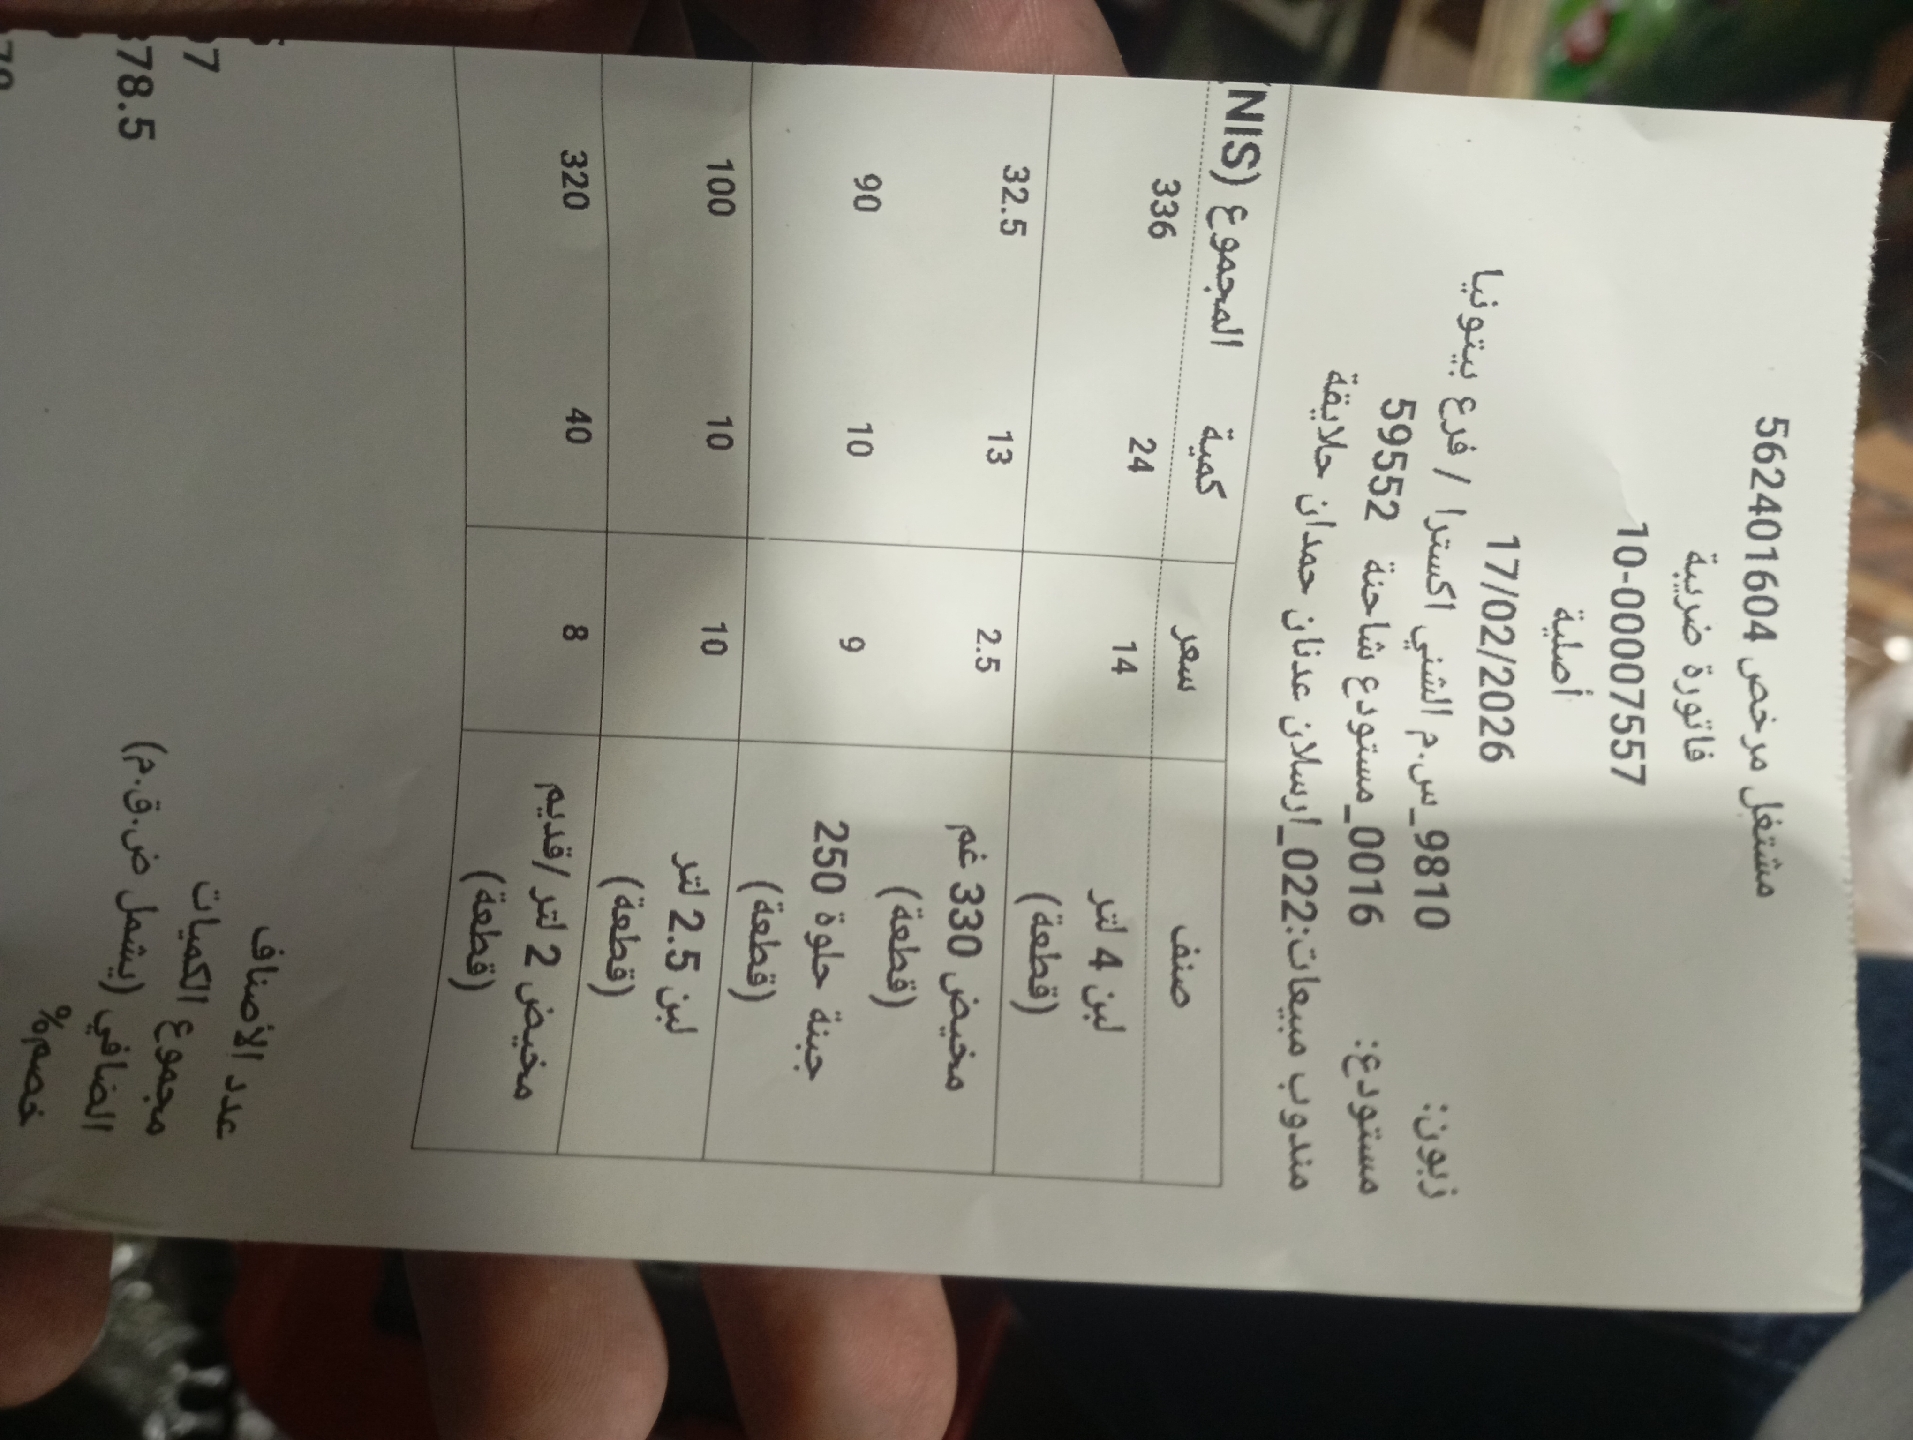 مشتغل مرخص 562401604
فاتورة ضريبية
10-00007557
أصلية
17/02/2026
زبون: 9810_س.م الشني اكسترا / فرع بيتونيا
مستودع: 0016_مستودع شاحنة 59552
مندوب مبيعات:022_ارسلان عدنان حمدان حلايقة
صنف سعر كمية المجموع (NIS)
لبن 4 لتر 14 24 336
(قطعة)
مخيض 330 غم 2.5 13 32.5
(قطعة)
جبنة حلوة 250 9 10 90
(قطعة)
لبن 2.5 لتر 10 10 100
(قطعة)
مخيض 2 لتر /قديم 8 40 320
(قطعة)
عدد الأصناف
مجموع الكميات 7
الصافي (يشمل ض.ق.م) 78.5
خصم%